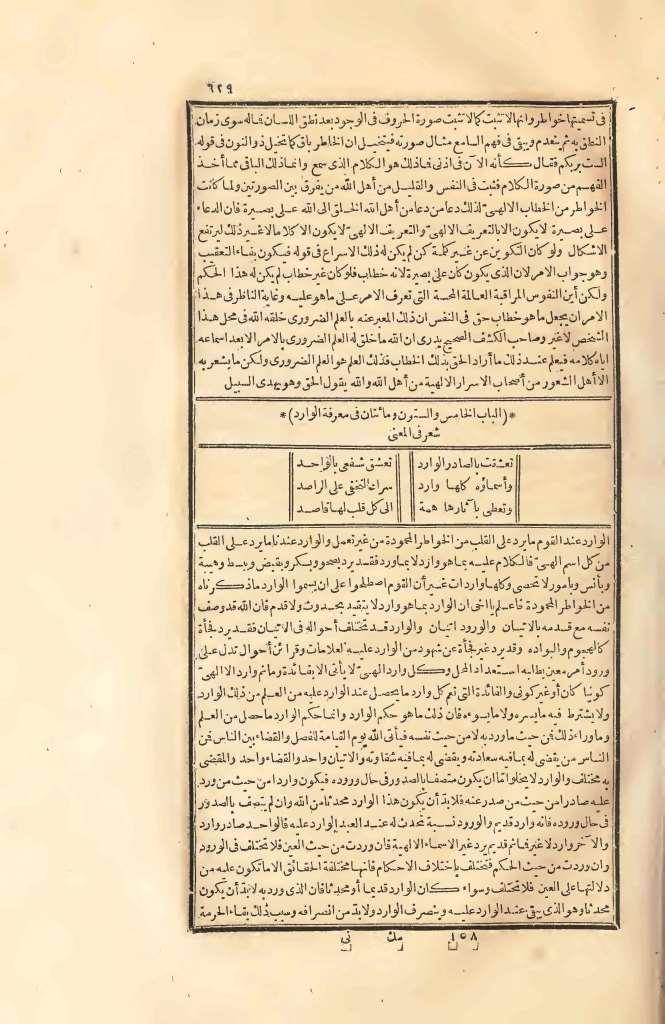 ٦٢٩
في تسميتها خواطر وانها لا تثبت كما لا تثبت صورة الحروف في الوجود بعد نطق اللسان فماله سوى زمان
النطق به ثم ينعدم ويبقى في فهم السامع مثال صورته فيتخيل ان الخاطر باق كما تخيل ذو النون في قوله
الست بربكم فقال كأنه الآن في اذنى فماذلك هو الكلام الذى سمع وانما ذلك الباقى مما أخذ
الفهم من صورة الكلام فثبت في النفس والقليل من أهل الله من يفرق بين الصورتين ولما كانت
الخواطر من الخطاب الالهى لذلك دعا من دعا من أهل الله الخلق الى الله على بصيرة فان الدعاء
على بصيرة لا يكون الا بالتعريف الالهى والتعريف الالهى لا يكون الا كلاما لا غير ذلك ليرتفع
الاشكال ولو كان التكوين عن غير كلمة كن لم يكن له ذلك الاسراع في قوله فيكون بفاء التعقيب
وهو جواب الامر لان الذى يكون كان على بصيرة لانه خطاب فلو كان غير خطاب لم يكن له هذا الحكم
ولكن أين النفوس المراقبة العالمة المحسة التى تعرف الامر على ما هو عليه وغاية الناظر في هذا
الامر ان يجعل ما هو خطاب حق في النفس ان ذلك المعبر عنه بالعلم الضرورى خلقه الله في محل هذا
الشخص لا غير وصاحب الكشف الصحيح يدرى ان الله ما خلق له العلم الضرورى بالامر الا بعد اسماعه
اياه كلامه فيعلم عند ذلك ما أراد الحق بذلك الخطاب فذلك العلم هو العلم الضرورى ولكن ما يشعر به
الا أهل الشعور من أصحاب الاسرار الالهية من أهل الله والله يقول الحق وهو يهدى السبيل
*(الباب الخامس والستون ومائتان في معرفة الوارد)*
شعر في المعنى
تعشقت بالصادر الوارد تعشق شفعى بالواحد
وأسماؤه كلها وارد سراك التخفى على الراصد
وتعطى بآثارها همة الى كل قلب لها قاصد
الوارد عند القوم ما يرد على القلب من الخواطر المحمودة من غير تعمل والوارد عندنا ما يرد على القلب
من كل اسم الهى فالكلام عليه بما هو وارد لا بما ورد فقد يرد بصحو وبسكر وبقبض وبسط وهيبة
وبأنس وبامور لا تحصى وكلها واردات غير أن القوم اصطلحوا على ان يسموا الوارد ماذكرناه
من الخواطر المحمودة فاعلم يا اخى ان الوارد بما هو وارد لا يتقيد بحدوث ولا قدم فان الله قد وصف
نفسه مع قدمه بالاتيان والورود اتيان والوارد قد تختلف أحواله في الاتيان فقد يرد فجأة
كالهجوم والبواده وقد يرد غير فجأة عن شهود من الوارد عليه لعلامات وقرائن أحوال تدل على
ورود أمر معين يطلبه استعداد المحل وكل وارد الهى لا يأتى الا بفائدة وما ثم وارد الا الهى
كونيا كان أو غير كونى والفائدة التى تعم كل وارد ما يحصل عند الوارد عليه من العلم من ذلك الوارد
ولا يشترط فيه ما يسره ولا ما يسوءه فان ذلك ما هو حكم الوارد وانما حكم الوارد ما حصل من العلم
وما وراء ذلك فمن حيث ما ورد به لا من حيث نفسه فيأتى الله يوم القيامة للفصل والقضاء بين الناس فمن
الناس من يقضى له بما فيه سعادته ويقضى له بما فيه شقاوته والاتيان واحد والقضاء واحد والمقضى
به مختلف والوارد لا يخلو اما ان يكون متصفا بالصدور في حال وروده فيكون واردا من حيث من ورد
عليه صادرا من حيث من صدر عنه فلا بد أن يكون هذا الوارد محدثا من الله وان لم يتصف بالصدور
في حال وروده فانه وارد قديم والورود نسبة تحدث له عند العبد الوارد عليه فالواحد صادر وارد
والآخر وارد لا غير فما ثم قديم يرد غير الاسماء الالهية فان وردت من حيث العين فلا تختلف في الورود
وان وردت من حيث الحكم فتختلف باختلاف الاحكام فانها مختلفة الحقائق الا ما تكون عليه من
دلالتها على العين فلا تختلف وسواء كان الوارد قديما أو محدثا فان الذى ورد به لا بد أن يكون
محدثا وهو الذى يبقى عند الوارد عليه وينصرف الوارد ولا بد من انصرافه وسبب ذلك بقاء الحرمة
١٥٨ مك نى